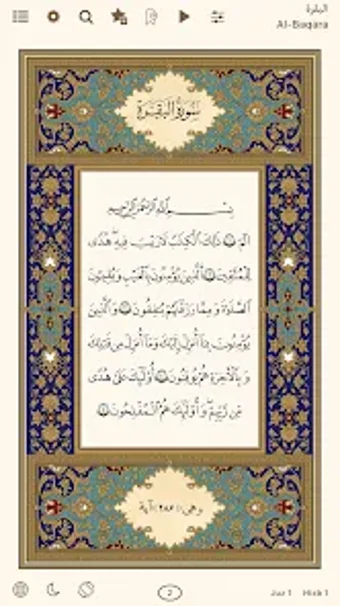 البقرة
Al-Baqara
سورة البقرة
بسم الله الرحمن الرحيم
الم ذلك الكتب لا ريب فيه هدى
للمتقين الذين يؤمنون بالغيب ويقيمون
الصلوة ومما رزقنهم ينفقون والذين
يؤمنون بما أنزل إليك وما أنزل من قبلك
وبالآخرة هم يوقنون أولئك على هدى
من ربهم وأولئك هم المفلحون
وهي ٢٨٦ آية
2
Juz 1 Hizb 1